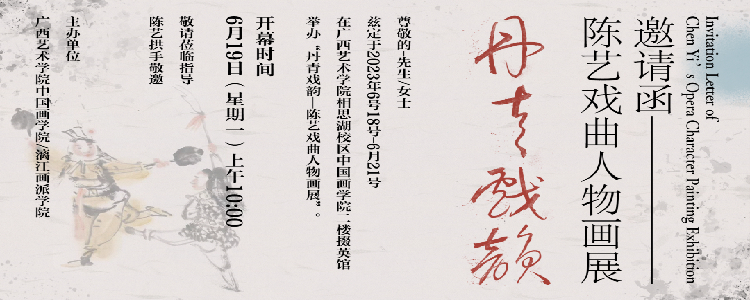 Invitation Letter of
Chen Yi's Opera Character Painting Exhibition
邀请函——
陈艺戏曲人物画展
丹青戏韵
尊敬的-先生/女士
兹定于2023年6号18号-6月21号
在广西艺术学院相思湖校区中国画学院二楼掇英馆
举办“丹青戏韵—陈艺戏曲人物画展”。
开幕时间
6月19日(星期一)上午10:00
敬请莅临指导
陈艺拱手敬邀
主办单位
广西艺术学院中国画学院/漓江画派学院